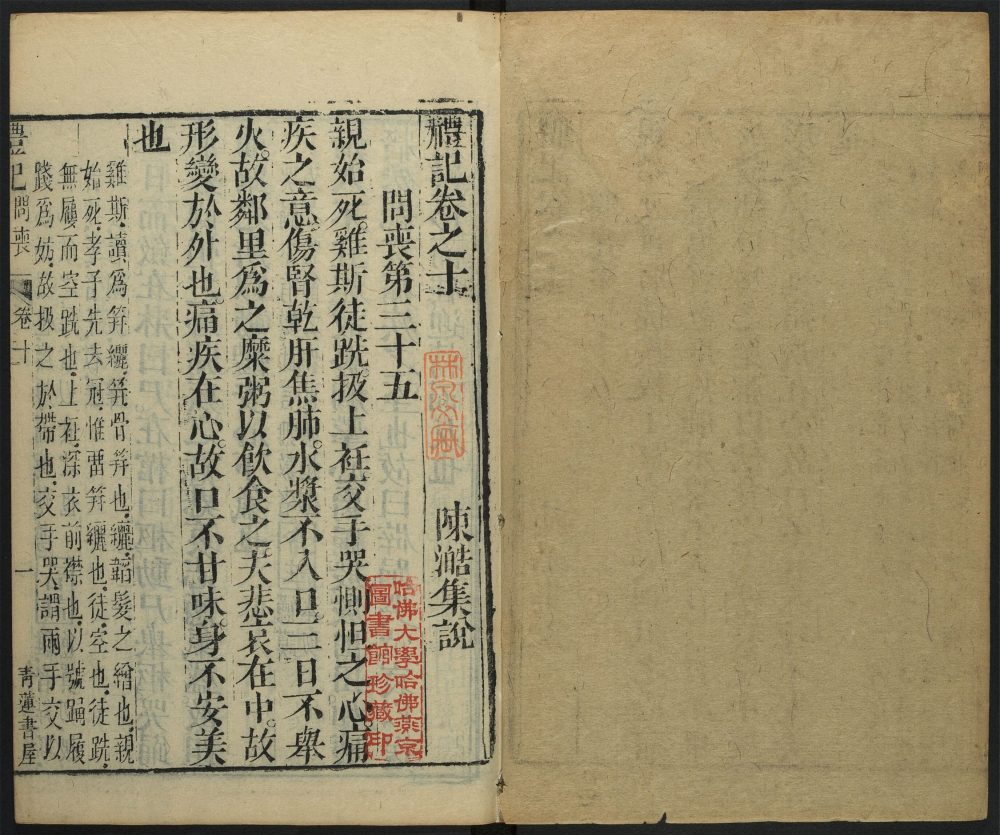 禮記卷之十
陳澔集說
問喪第三十五
親始死。雞斯徒跣。扱上衽。交手哭。惻怛之心。痛
疾之意。傷腎乾肝焦肺。水漿不入口。三日不舉
火。故鄰里爲之糜粥以飲食之。夫悲哀在中。故
形變於外也。痛疾在心。故口不甘味。身不安美
也
雞斯。讀爲笄纚。笄骨笄也。纚。韜髮之繒也。親
始死。孝子先去冠。惟畱笄纚也。徒。空也。徒跣。
無屨而空跣也。上衽。深衣前襟也。以號踊履
踐爲妨。故扱之於帶也。交手哭。謂兩手交以
禮記 問喪 卷十 一 青蓮書屋
哈佛大學哈佛燕京
圖書館珍藏印